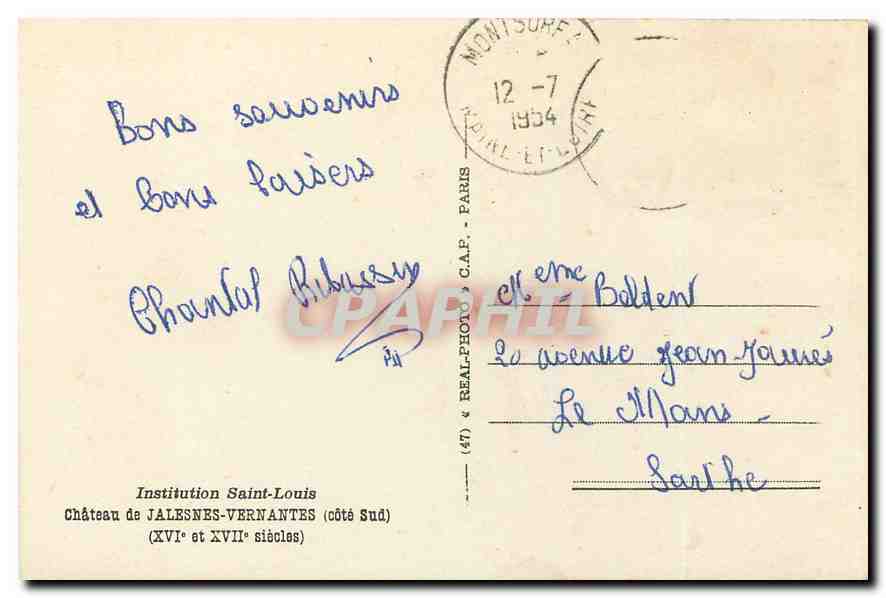 Bons souvenirs
et bons baisers
Chantal
MONTSOREA
12 -7
1954
MAINE-ET-LOIRE
(47) « REAL-PHOTO » C.A.P. - PARIS
CPAPHIL
Meme Baldent
20 avenue Jean-Jaurés
Le Mans -
Sarthe
Institution Saint-Louis
Château de JALESNES-VERNANTES (côté Sud)
(XVIe et XVIIe siècles)